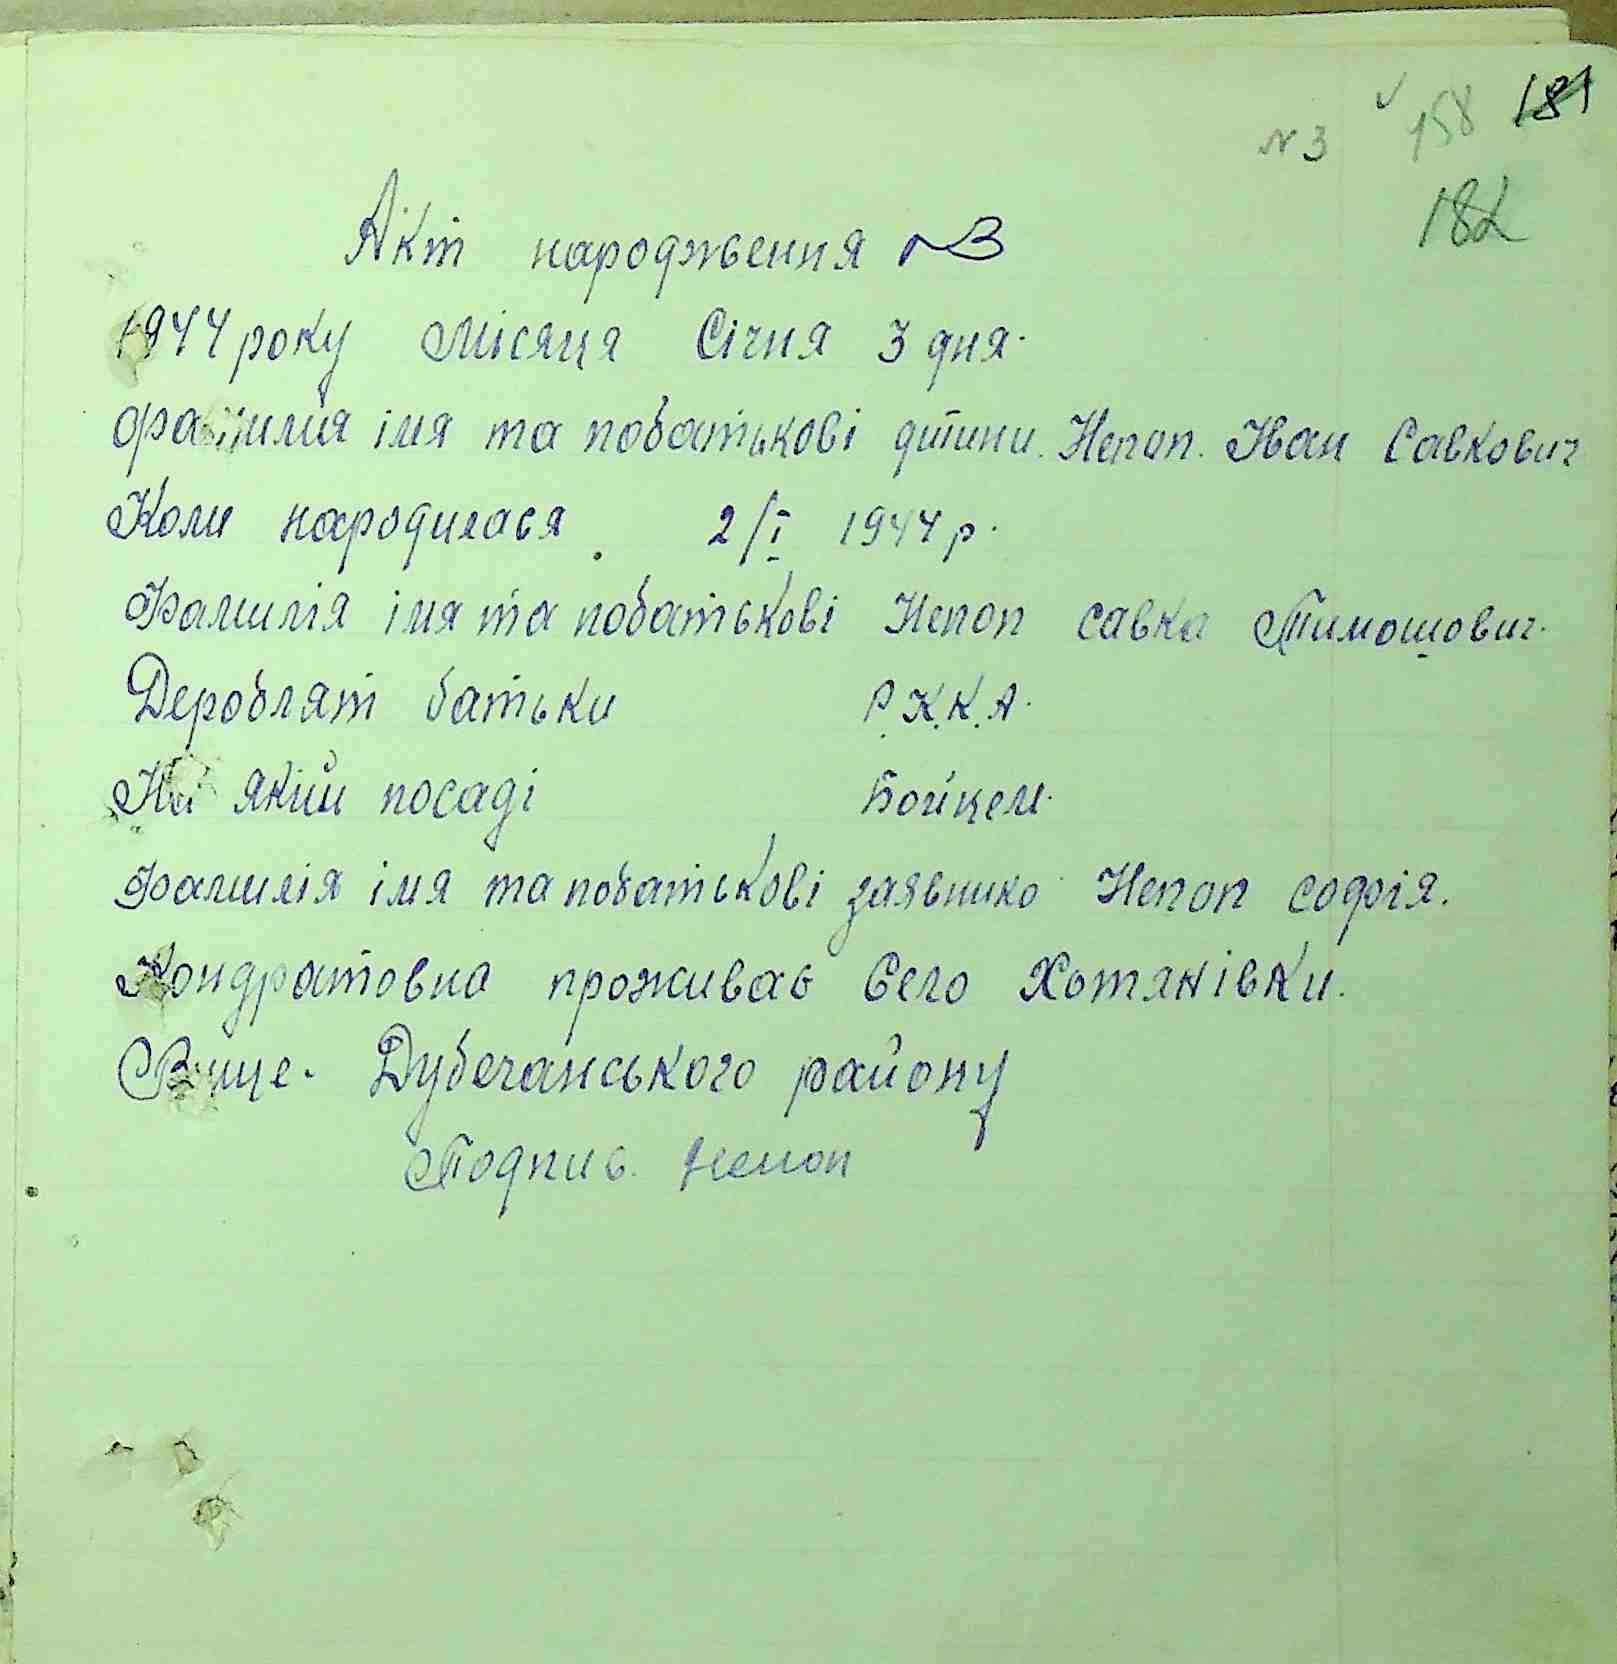 № 3 158 181
182
Акт народження №3
1944 року Місяця Січня 3 дня.
Фамилия імя та побатькові дитини. Непоп. Іван Савкович
Коли народилася 2/І 1944 р.
Фамилія імя та побатькові Непоп савка Тимошович.
Деробляті батьки Р.К.К.А.
На якій посаді Бойцем.
Фамилія імя та побатькові заявнико Непоп софія.
Кондратовна проживає Село Хотянівки.
Вище-Дубечанського району
Подпис. Непоп